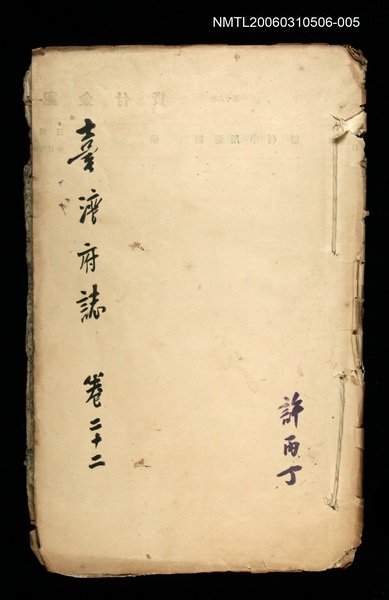 NMTL20060310506-005
臺灣府誌 卷二十二
許丙丁